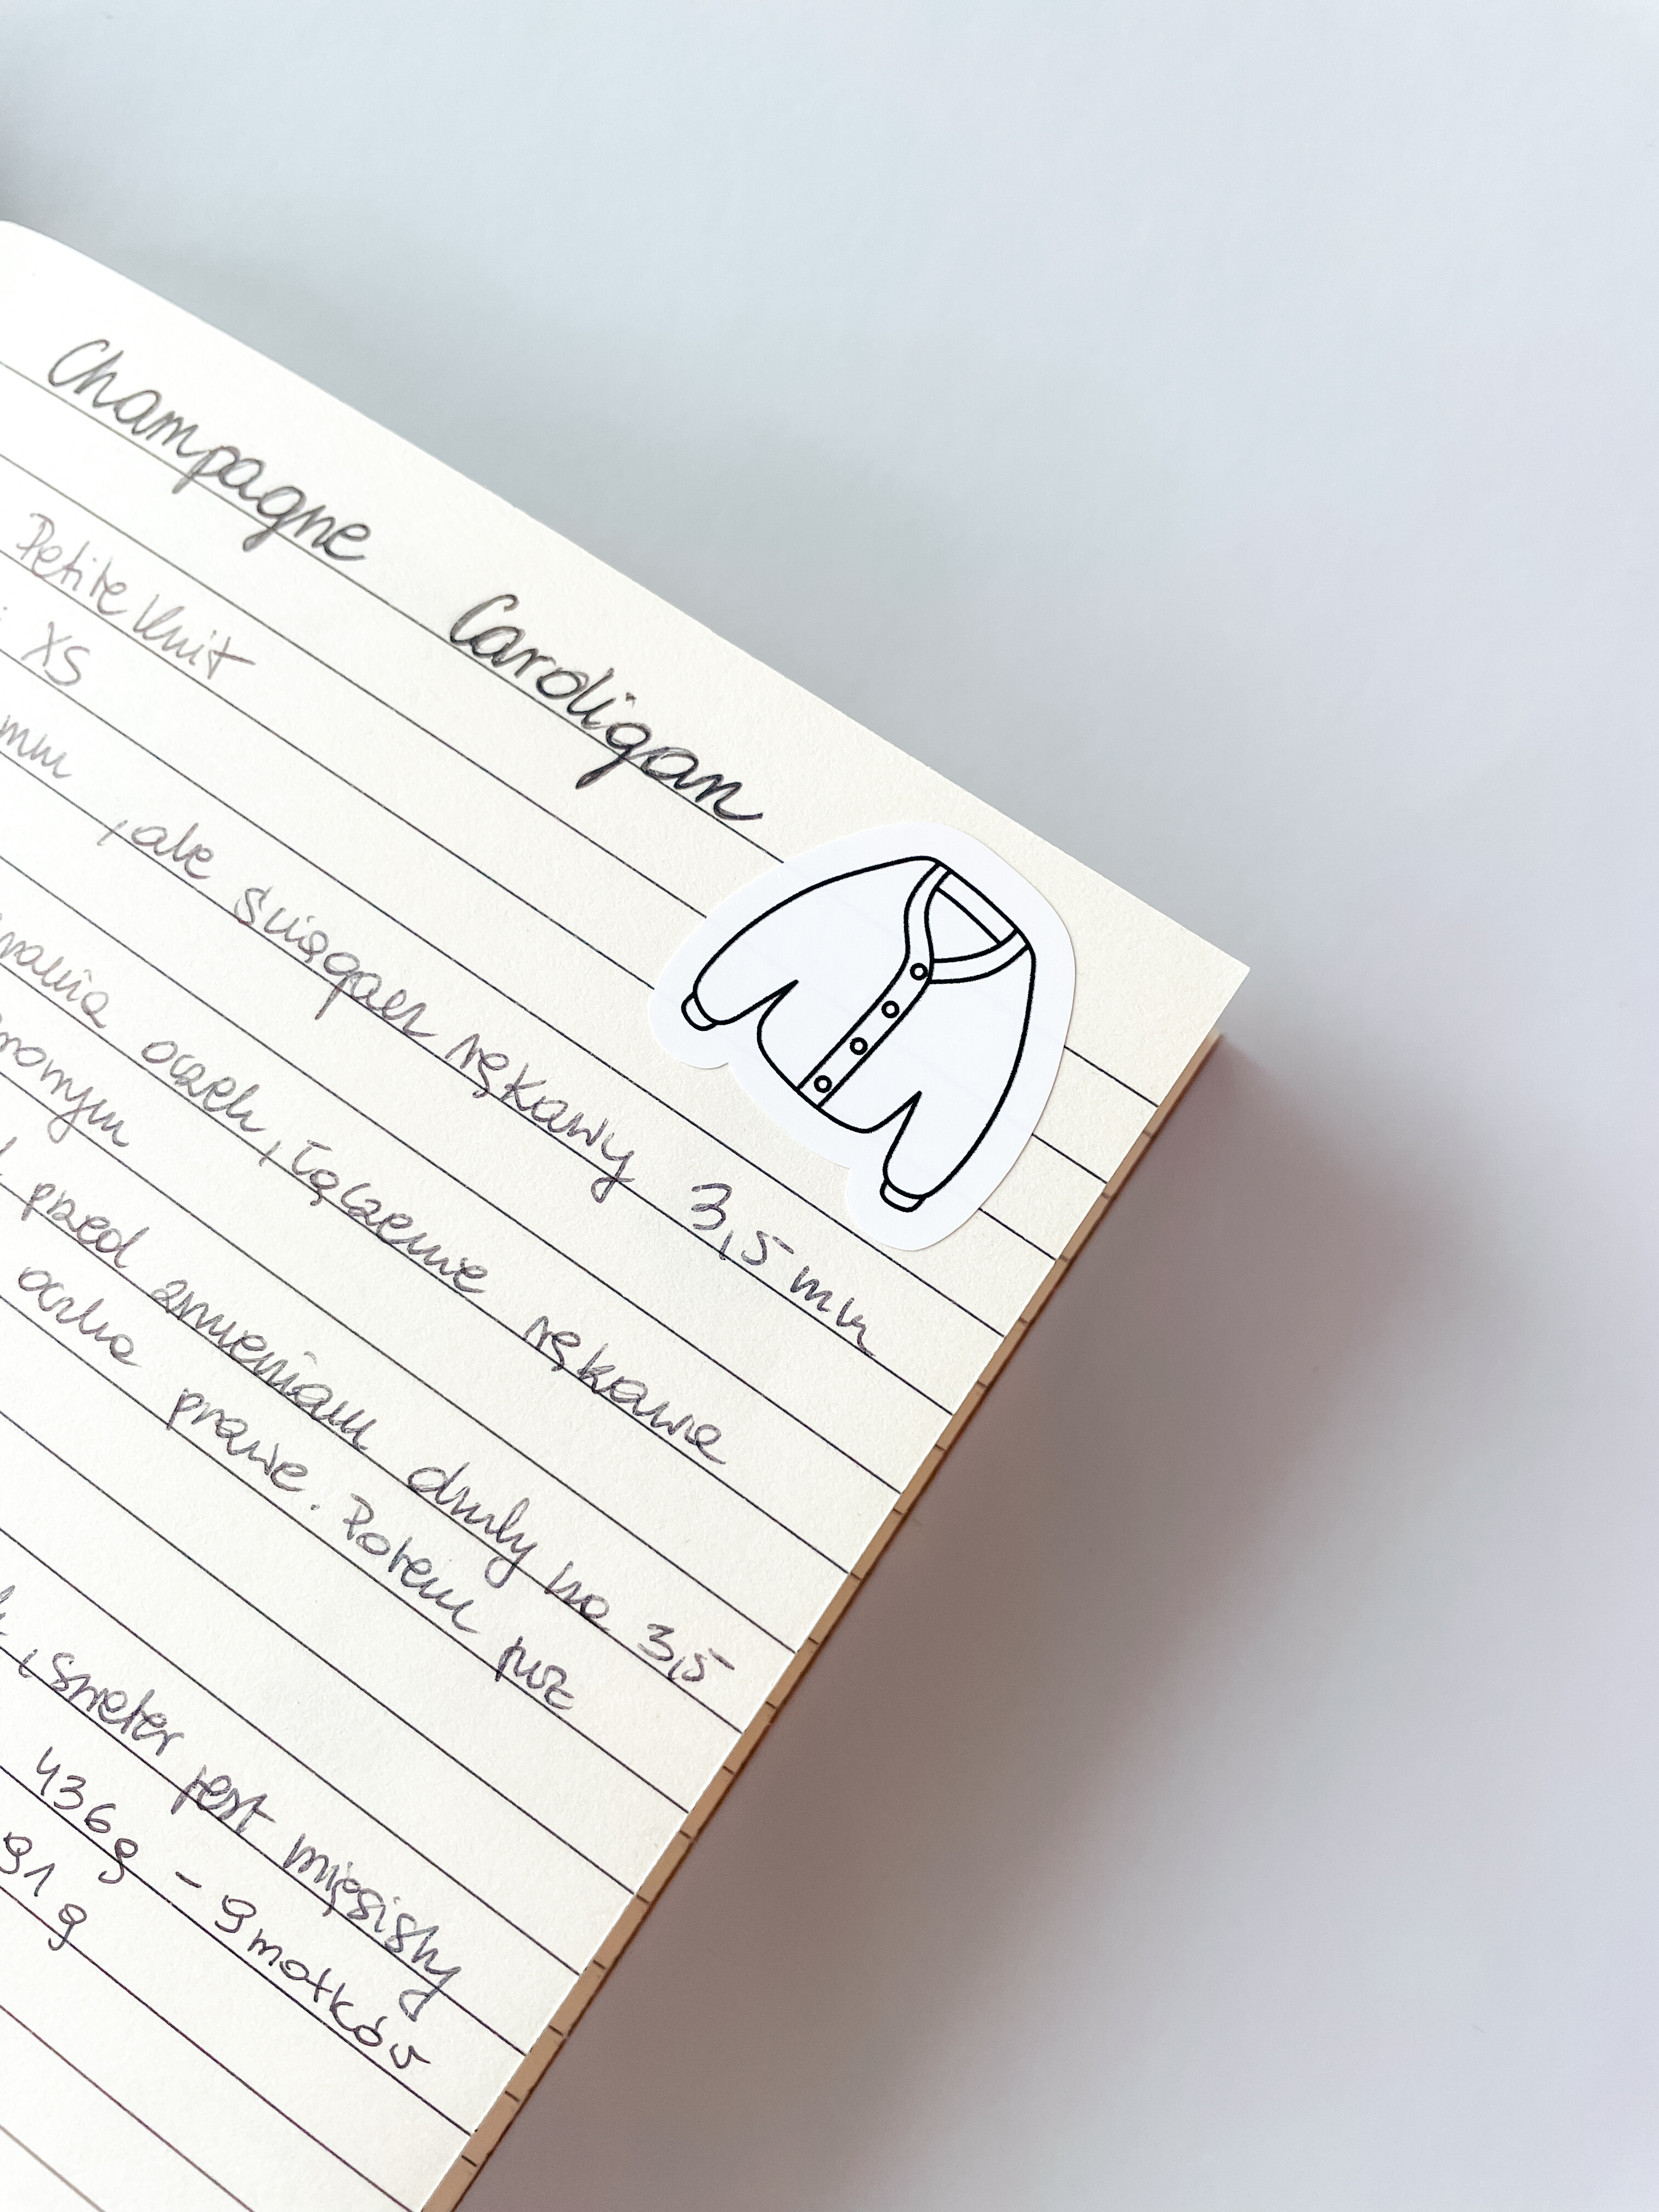 Champagne Cardigan
Petite Knit
XS
mm
, ale ściągacz rękawy 3,5 mm
oczek, łączenie rękawie
przed zmieniam druty na 3,5
oczka prawe. Potem już
, sweter jest mięsisty
436g - 9 motków
91 g